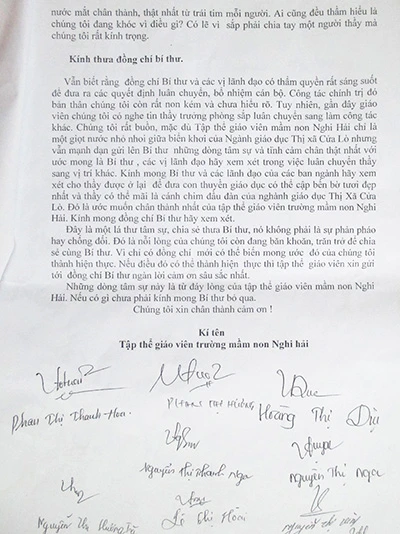 nước mắt chân thành, thật nhất từ trái tim mỗi người. Ai cũng đều thầm hiểu là
chúng tôi đang khóc vì điều gì? Có lẽ vì sắp phải chia tay một người thầy mà
chúng tôi rất kính trọng.
Kính thưa đồng chí bí thư.
Vẫn biết rằng đồng chí Bí thư và các vị lãnh đạo có thẩm quyền rất sáng suốt
để đưa ra các quyết định luân chuyển, bổ nhiệm cán bộ. Công tác chính trị đó
bản thân chúng tôi còn rất non kém và chưa hiểu rõ. Tuy nhiên, gần đây giáo
viên chúng tôi có nghe tin thầy trưởng phòng sắp luân chuyển sang làm công tác
khác. Chúng tôi rất buồn, mặc dù Tập thể giáo viên mầm non Nghi Hải chỉ là
một giọt nước nhỏ nhoi giữa biển khơi của Ngành giáo dục Thị xã Cửa Lò nhưng
vẫn mạnh dạn gửi lên Bí thư những dòng tâm sự và tình cảm chân thật nhất với
ước mong là Bí thư , các vị lãnh đạo hãy xem xét trong việc luân chuyển thầy
sang vị trí khác. Kính mong Bí thư và các lãnh đạo của các ban ngành hãy xem
xét cho thầy được ở lại để đưa con thuyền giáo dục có thể cập bến bờ tươi đẹp
nhất và thầy có thể mãi là cánh chim đầu đàn của nghành giáo dục Thị xã Cửa
Lò. Đó là ước muốn chân thành nhất của tập thể giáo viên trường mầm non Nghi
Hải. Kính mong đồng chí Bí thư hãy xem xét.
Đây là một lá thư tâm sự, chia sẻ thưa Bí thư, nó không phải là sự phản pháo
hay chống đối. Đó là nỗi lòng của chúng tôi còn đang băn khoăn, trăn trở để chia
sẻ cùng Bí thư. Vì chỉ có đồng chí mới có thể biến mong ước đó của chúng tôi
thành hiện thực. Nếu điều đó có thể thành hiện thực thì tập thể giáo viên xin gửi
tới đồng chí Bí thư ngàn lời cảm ơn sâu sắc nhất.
Những dòng tâm sự này là từ đáy lòng của tập thể giáo viên mầm non Nghi
Hải. Nếu có gì chưa phải kính mong Bí thư bỏ qua.
Chúng tôi xin chân thành cảm ơn !
Kí tên
Tập thể giáo viên trường mầm non Nghi hải
Phan Thị Thanh-Hoa Hoàng Thị Dịu
Nguyễn Thị Thanh Nga Nguyễn Thị Nga
Nguyễn Thị Lê Thị Hoa Nguyễn